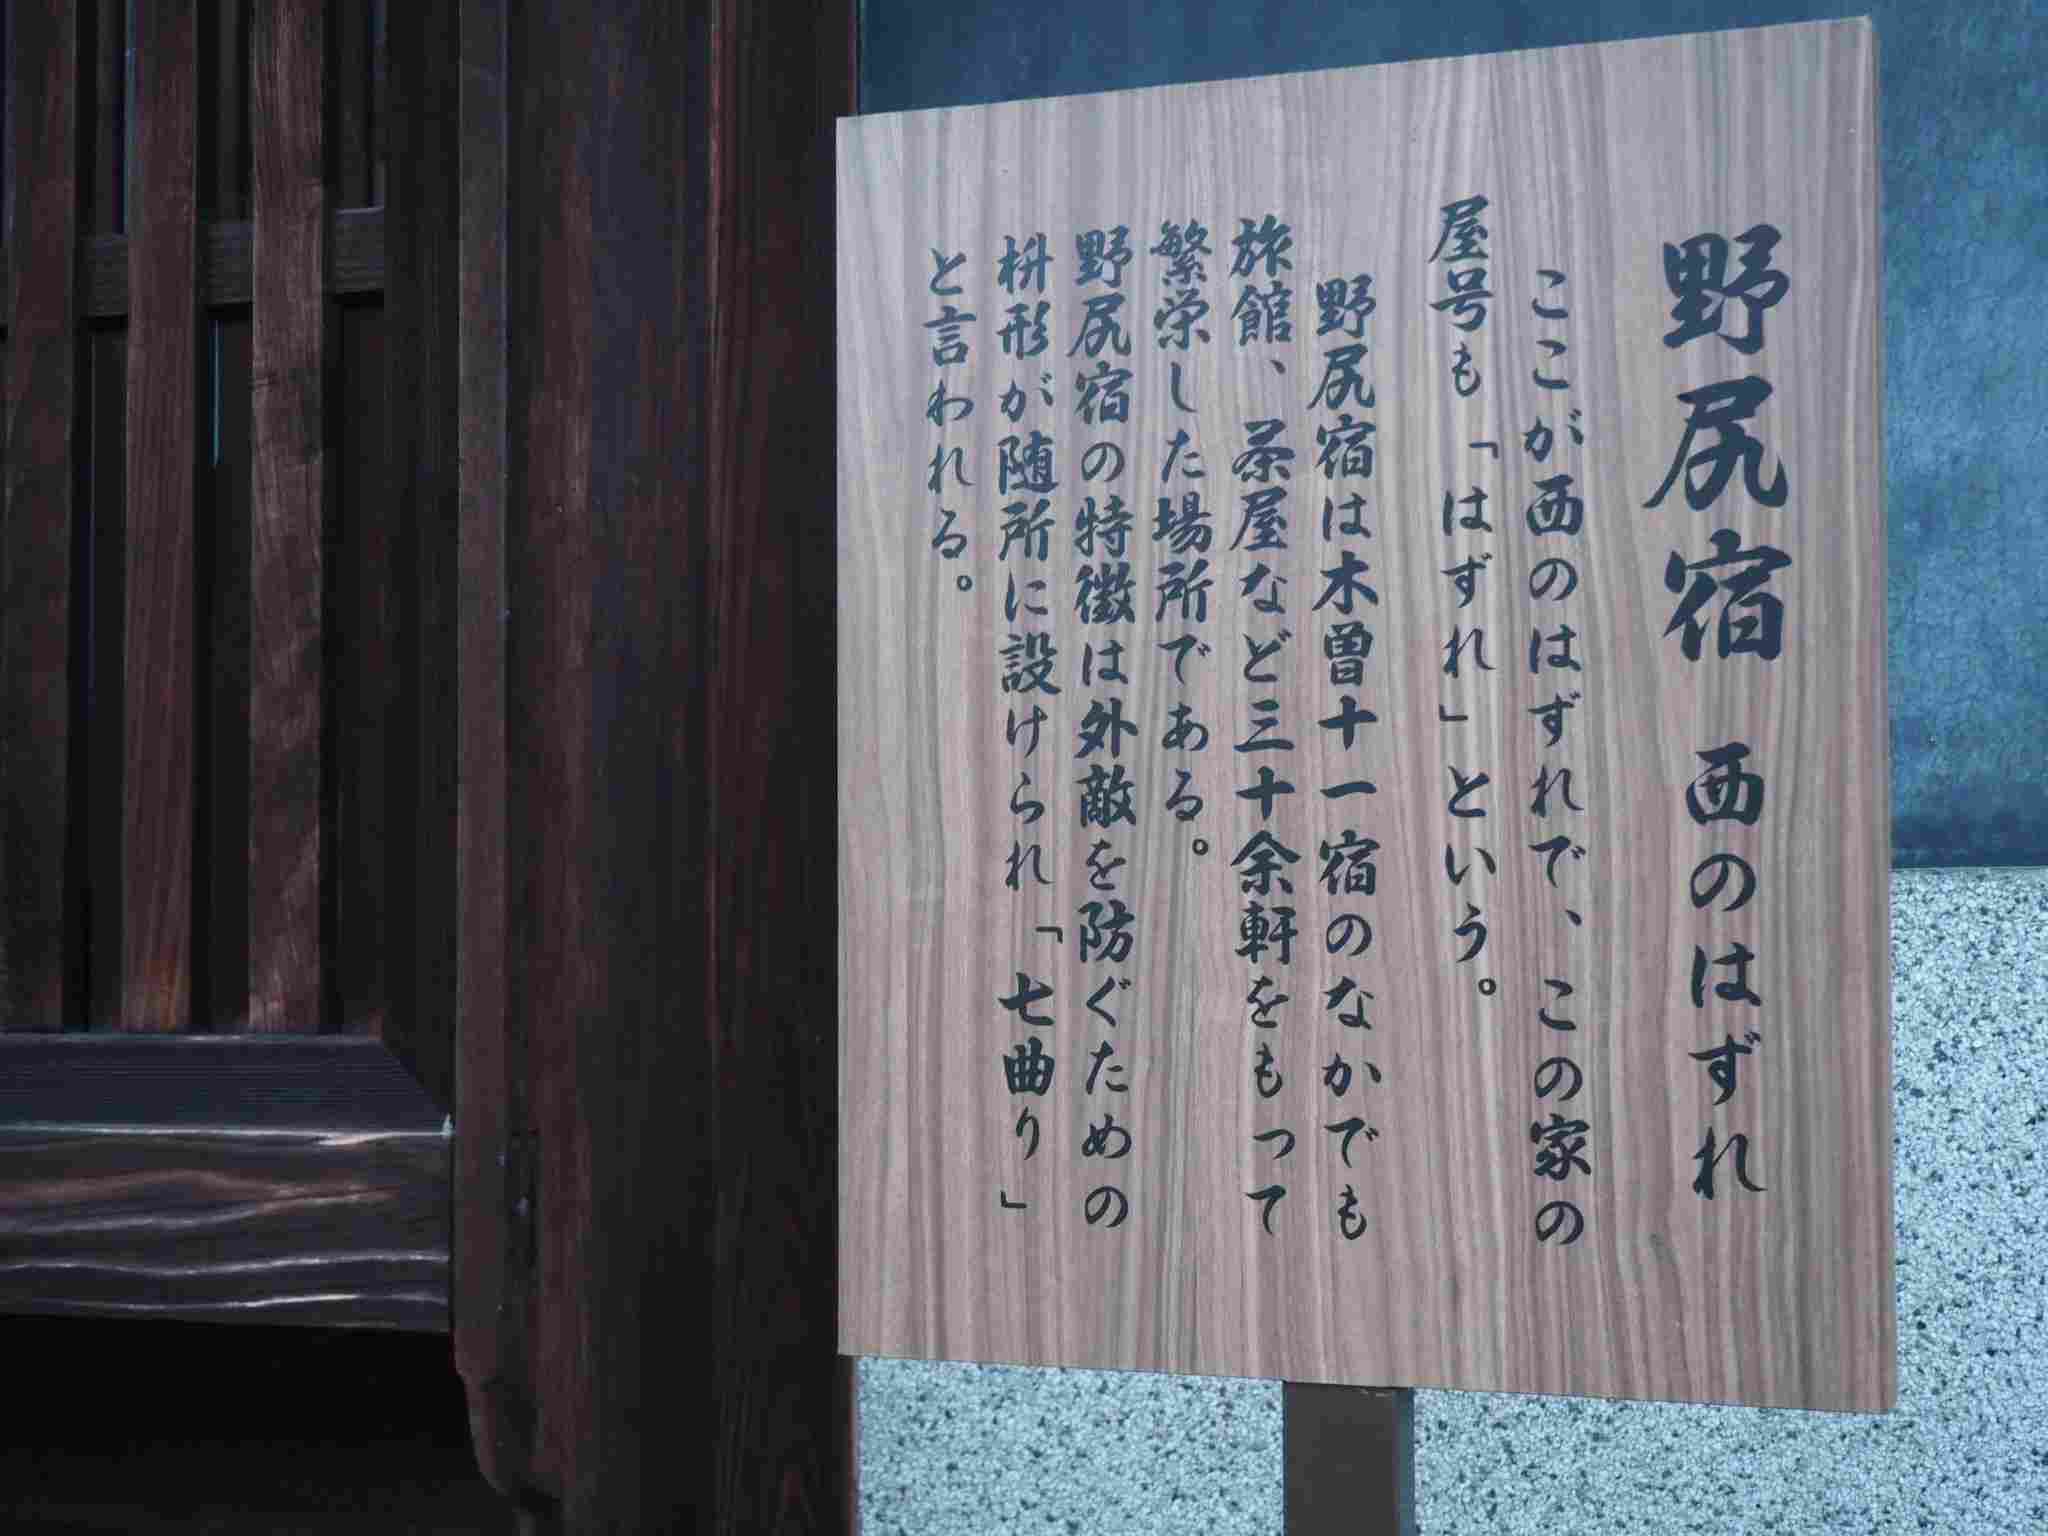 野尻宿 西のはずれ
ここが西のはずれで、この家の
屋号も「はずれ」という。
野尻宿は木曽十一宿のなかでも
旅館、茶屋など三十余軒をもって
繁栄した場所である。
野尻宿の特徴は外敵を防ぐための
枡形が随所に設けられ「七曲り」
と言われる。